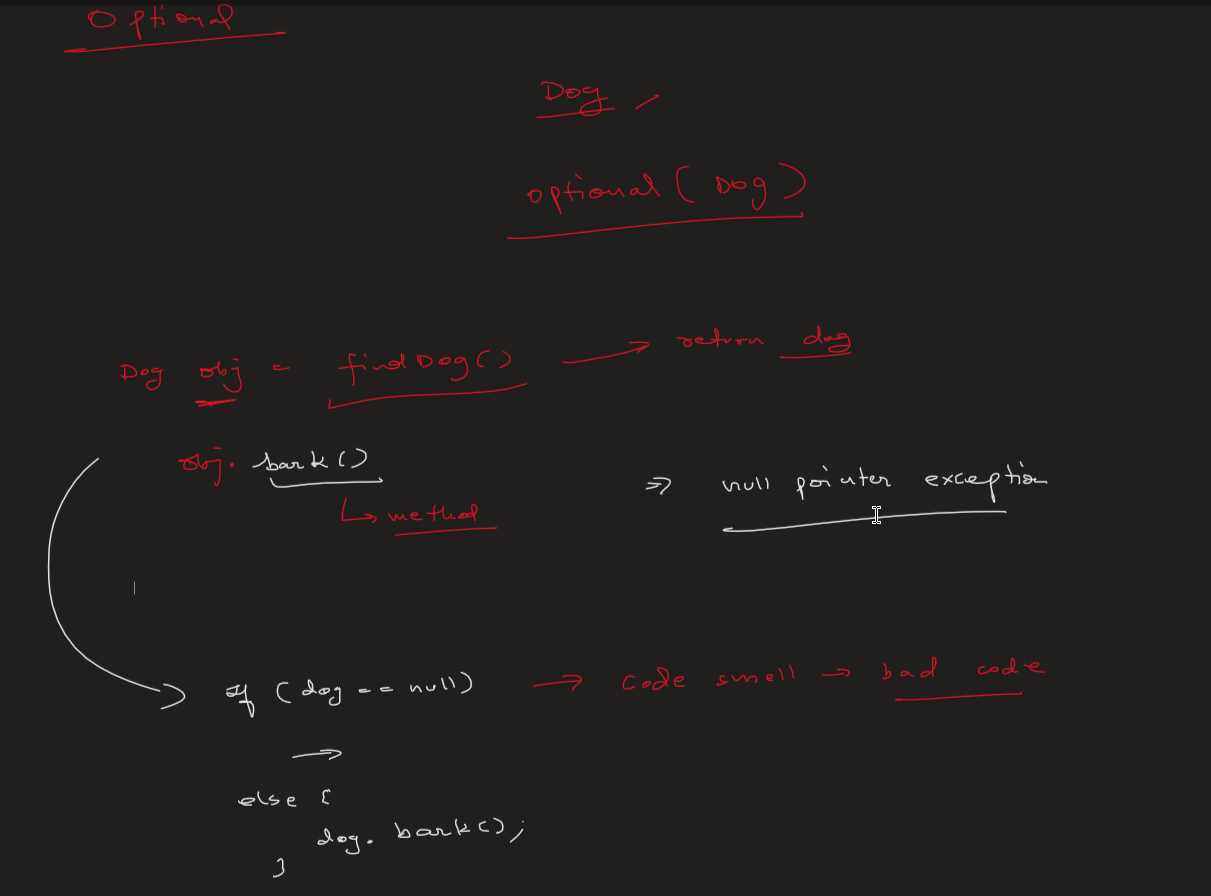 Optional
Dog
optional ( Dog )
Dog obj = findDog() → return dog
obj. bark()
↳ method
⇒ null pointer exception
if (dog == null) → code smell → bad code
→
else {
dog. bark();
}